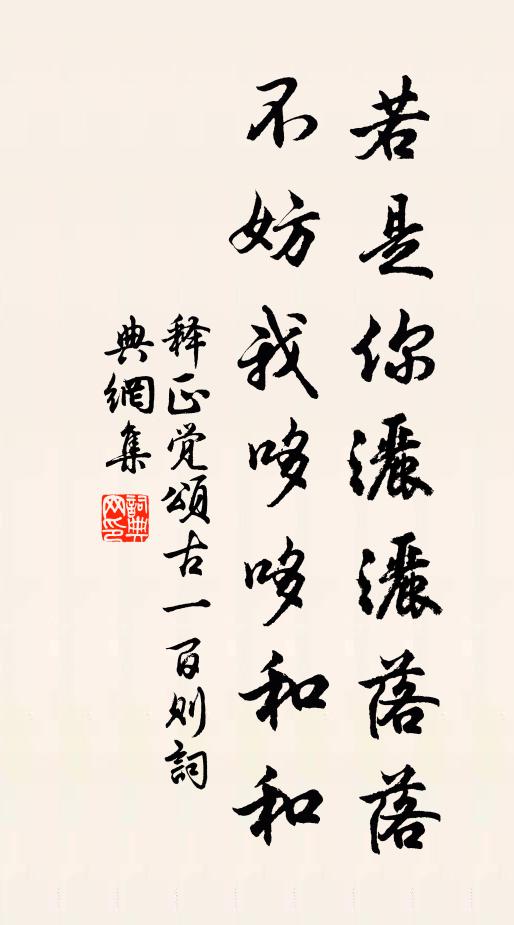 若是你灑灑落落
不妨我哆哆和和
释正觉頌古一百则詞
典網集
詞典
网印